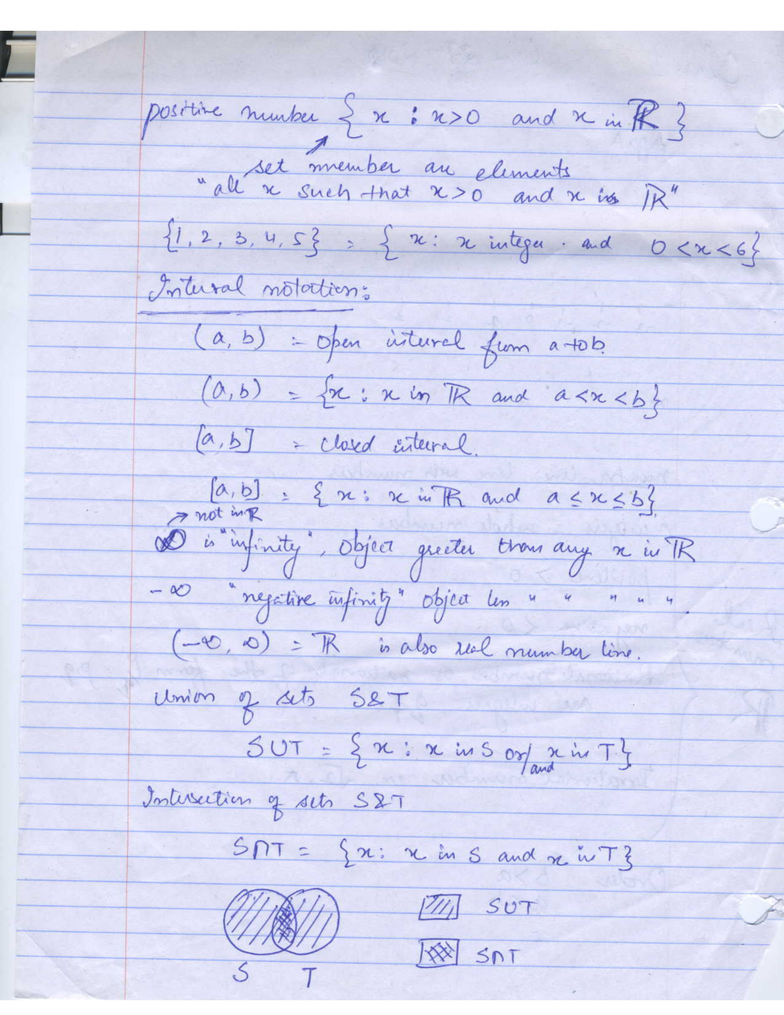 positive number { x : x>0 and x in ℝ }
set member are elements
"all x such that x>0 and x in ℝ"
{1, 2, 3, 4, 5} = { x : x integer and 0 < x < 6}
Interval notation:
(a, b) = open interval from a to b.
(a, b) = {x : x in ℝ and a < x < b}
[a, b] = closed interval.
[a, b] = { x : x in ℝ and a ≤ x ≤ b}
→ not in ℝ
∞ is "infinity", object greater than any x in ℝ
-∞ "negative infinity" object less " " " " ".
(-∞, ∞) = ℝ is also real number line.
Union of sets S&T
S∪T = { x : x in S or/and x in T}
Intersection of sets S&T
S∩T = {x : x in S and x in T}
S∪T
S∩T
S T